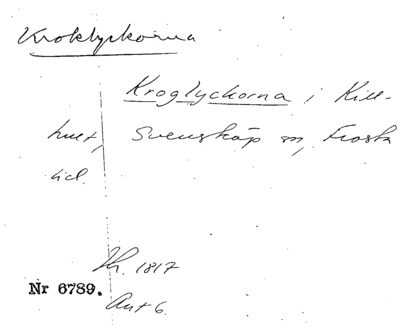 Kroklyckorna
Kroglyckorna i Kill-
hult, Svensköp sn, Frosta
hd.
Kh. 1817
Nr 6789.
Ant 6.